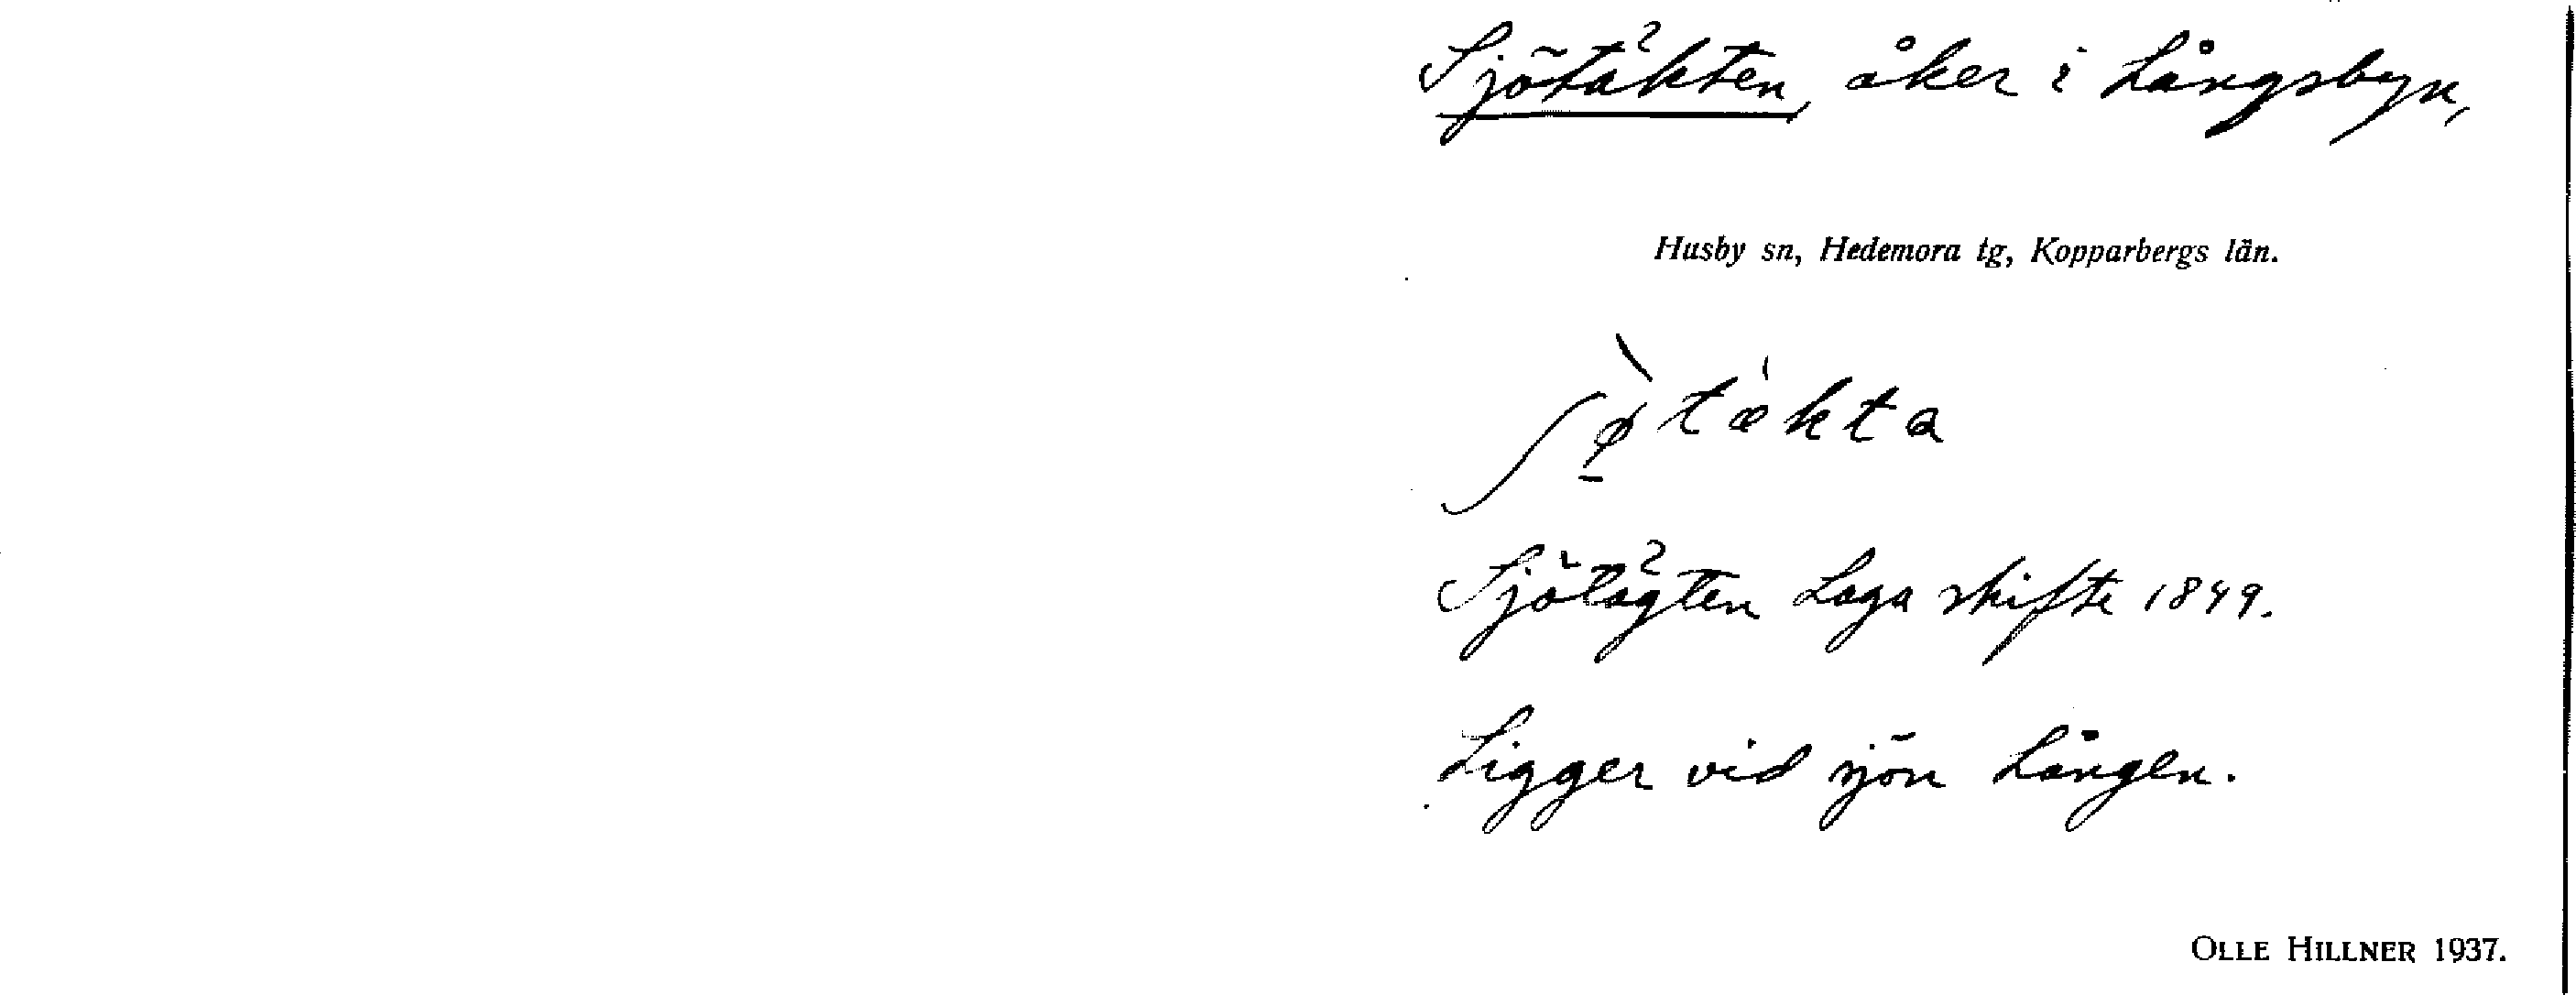 Sjötäkten, åker i Långsbyn,
Husby sn, Hedemora tg, Kopparbergs län.
ʃø̠̀tækta
Sjötägten Laga skifte 1849.
Ligger vid sjön Lången.
OLLE HILLNER 1937.